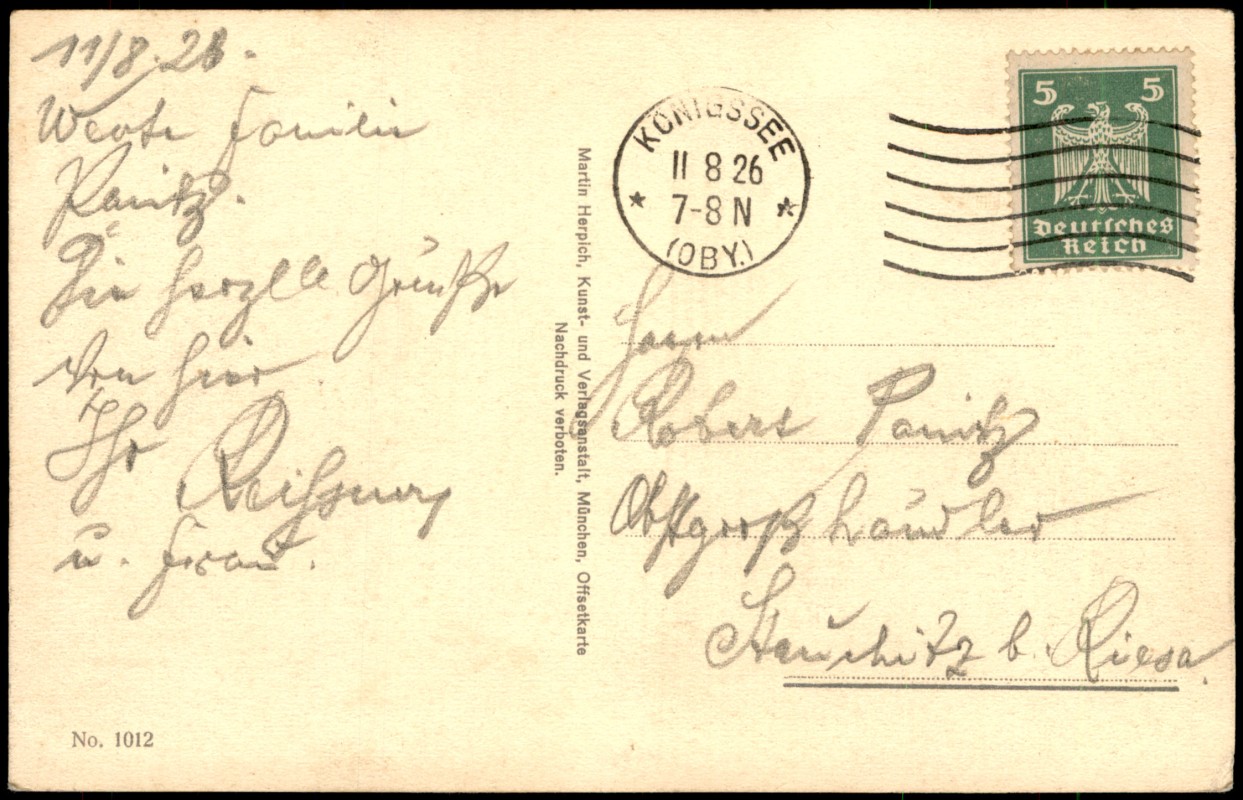 11/8.26.
Werte Familie
Panitz.
Die herzll Grüße
von hier
Ihr
u. Frau.
KÖNIGSSEE
11 8 26
7-8 N
(OBY.)
5 5
Deutsches
Reich
Martin Herpich, Kunst- und Verlagsanstalt, München, Offsetkarte
Nachdruck verboten.
Herrn
Robert Panitz
Obstgroßhändler
Stauchitz b. Riesa.
No. 1012